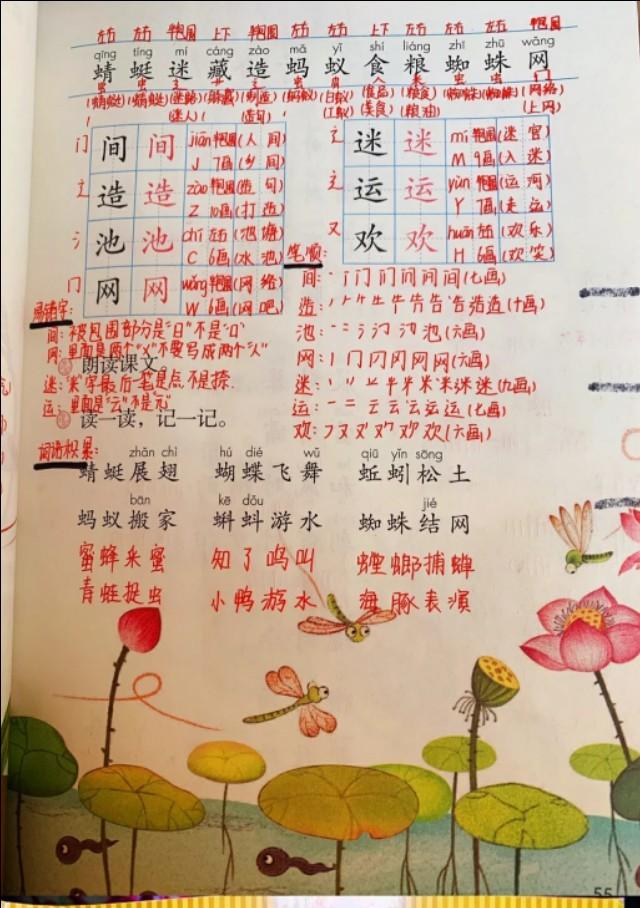 左右 左右 半包围 上下 半包围 左右 左右 上下 左右 左右 左右 半包围
qīng tíng mí cáng zào mǎ yǐ shí liáng zhī zhū wǎng
蜻 蜓 迷 藏 造 蚂 蚁 食 粮 蜘 蛛 网
虫 虫 辶 艹 辶 虫 虫 食 米 虫 虫 冂
(蜻蜓) (蜻蜓) (迷路) (躲藏) (制造) (蚂蚁) (白蚁) (食品) (粮食) (蜘蛛) (蜘蛛) (网络)
(迷人) (造句) (工蚁) (美食) (粮油) (上网)
门 间 间 jiān 半包围 (人间)
J 7画 (乡间)
辶 造 造 zào 半包围 (造句)
Z 10画 (打造)
氵 池 池 chí 左右 (池塘)
C 6画 (水池)
冂 网 网 wǎng 半包围 (网络)
W 6画 (网吧)
辶 迷 迷 mí 半包围 (迷宫)
M 9画 (入迷)
辶 运 运 yùn 半包围 (运河)
Y 7画 (走运)
又 欢 欢 huān 左右 (欢乐)
H 6画 (欢笑)
易错字:
间:被包围部分是“日”不是“口”
网:里面是两个“乂”不要写成两个“人”
朗读课文。
迷:“米”字最后一笔是点,不是捺.
运:里面是“云”不是“元”
读一读,记一记。
笔顺:
间: (七画)
造: (十画)
池: (六画)
网: (六画)
迷: (九画)
运: (七画)
欢: (六画)
词语积累:
zhǎn chì hú dié wǔ qiū yǐn sōng
蜻蜓展翅 蝴蝶飞舞 蚯蚓松土
bān kē dǒu jié
蚂蚁搬家 蝌蚪游水 蜘蛛结网
蜜蜂采蜜 知了鸣叫 螳螂捕蝉
青蛙捉虫 小鸭游水 海豚表演
55